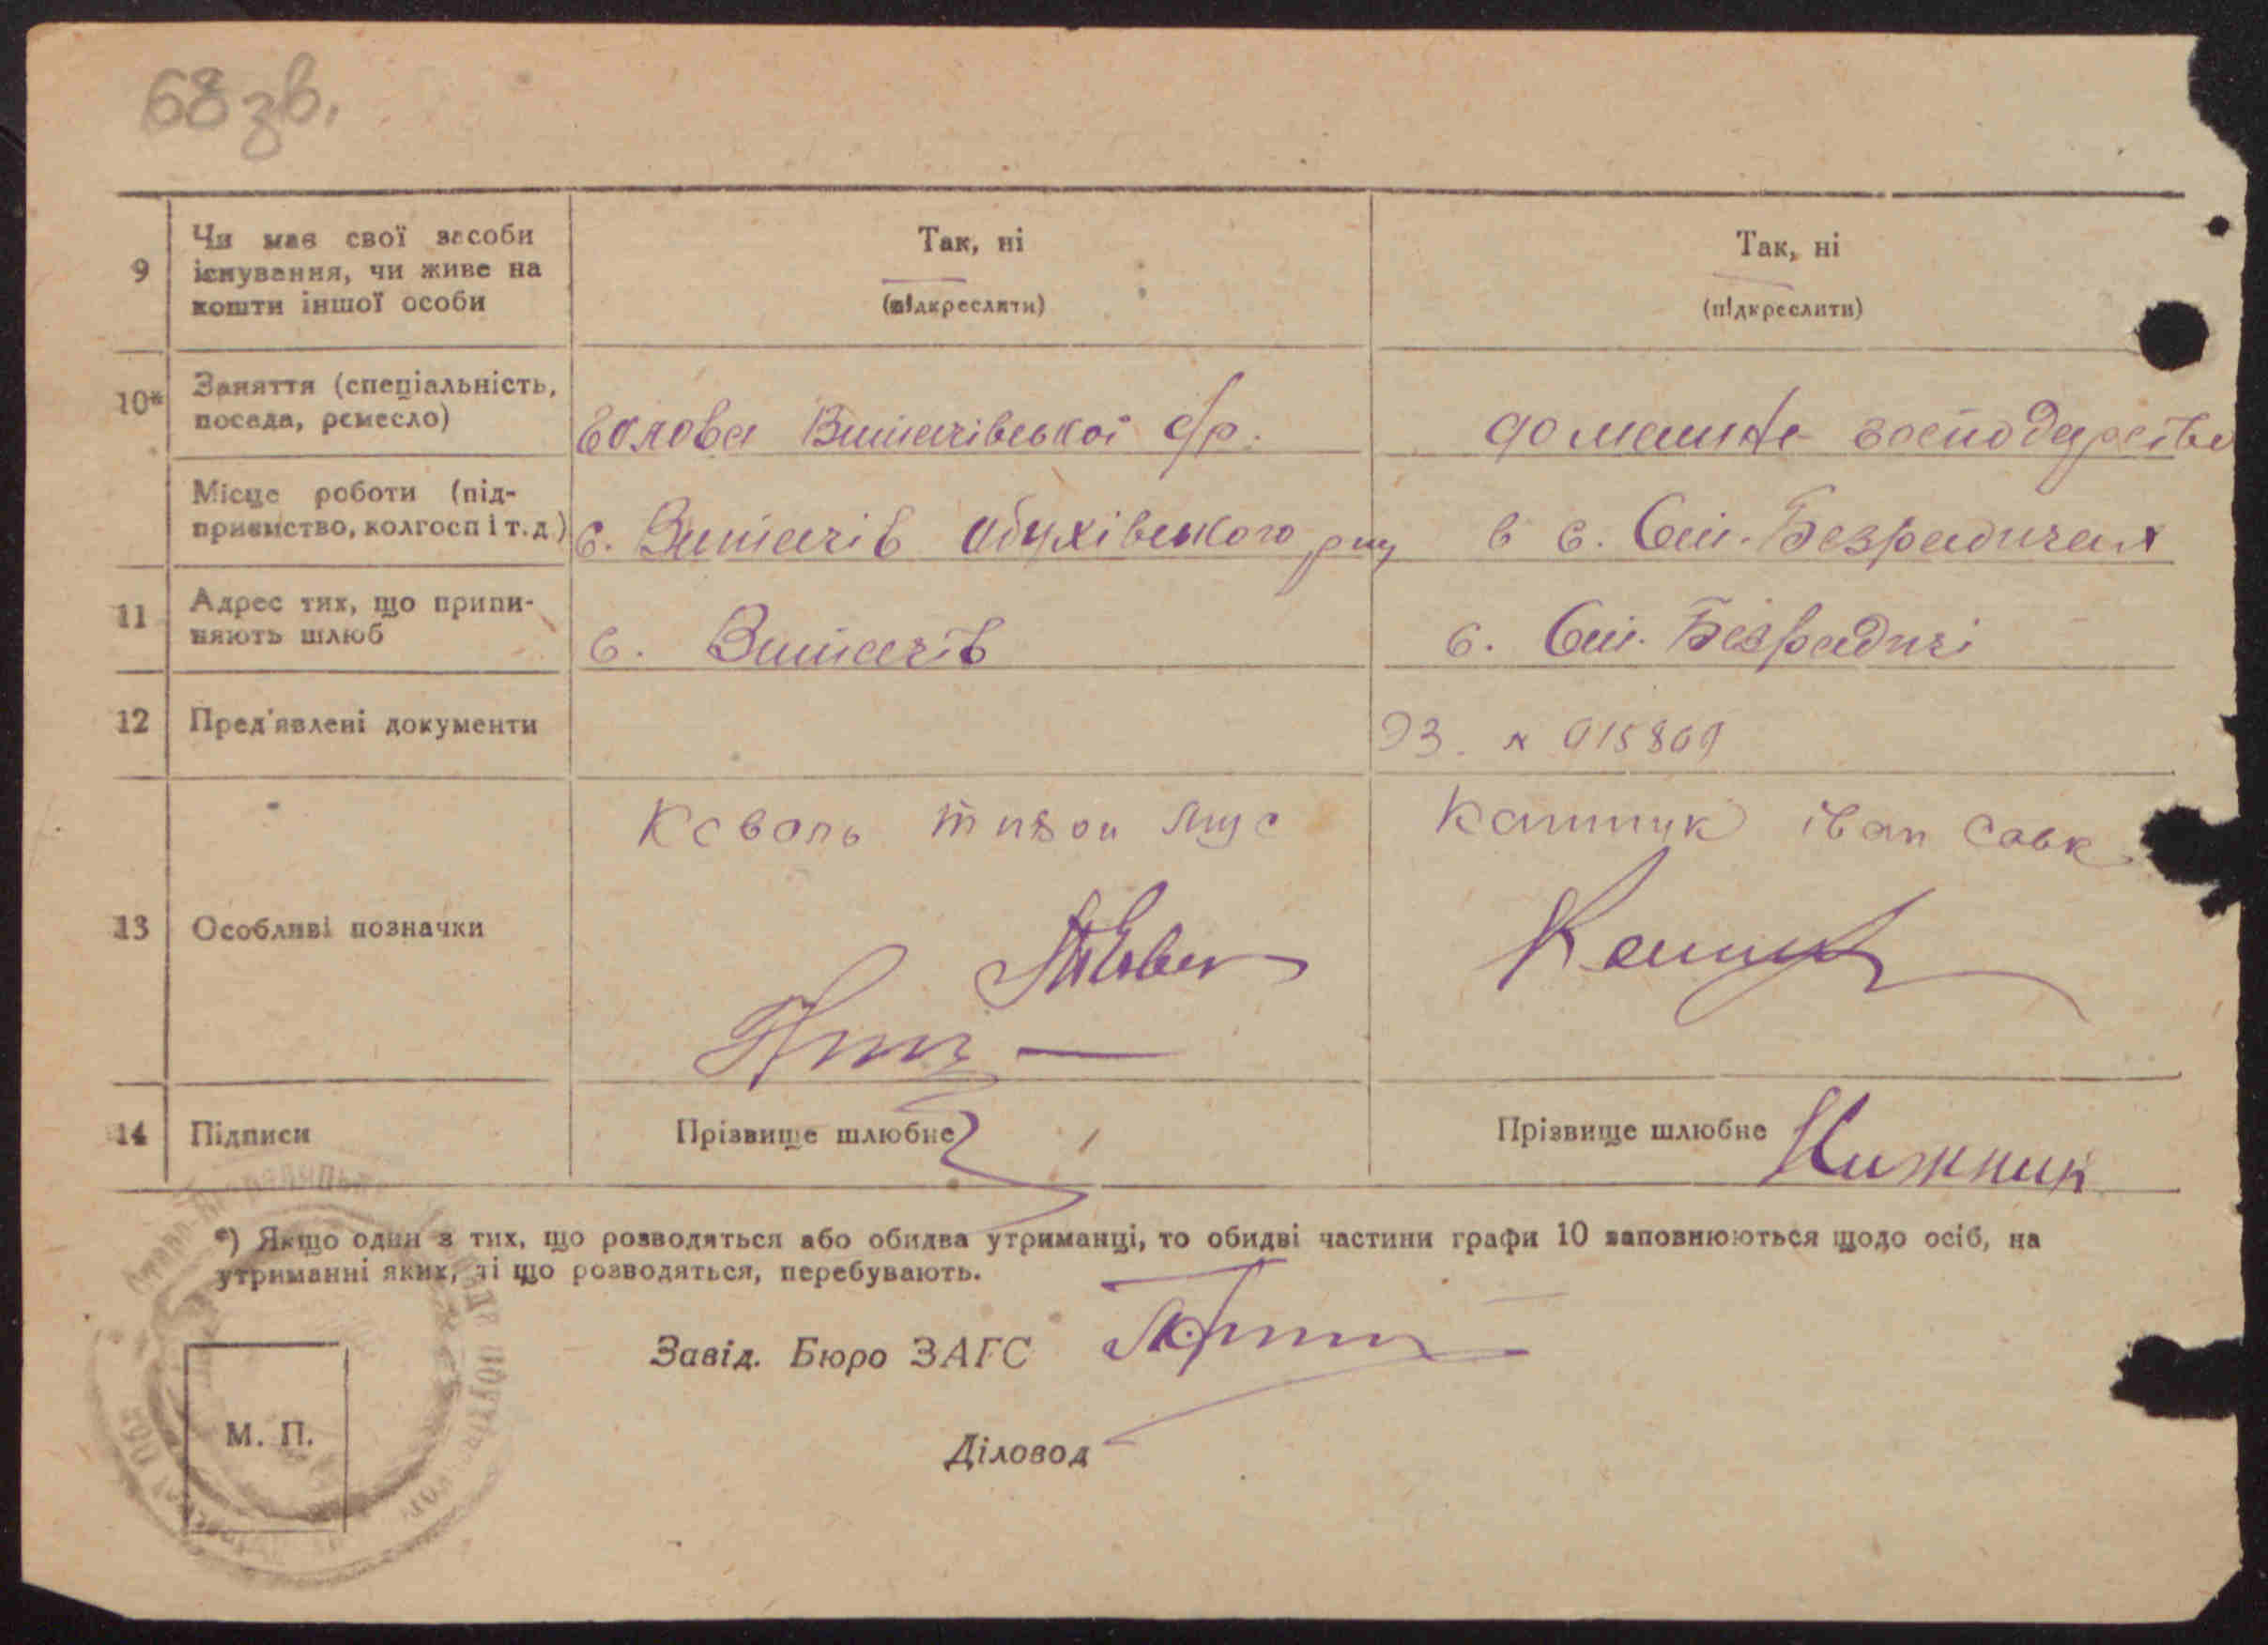 68 зв.
9 Чи має свої засоби існування, чи живе на кошти іншої особи
Так, ні
(підкреслити)
Так, ні
(підкреслити)
10* Заняття (спеціальність, посада, ремесло)
Голова Витачівської с/р.
домашнє господарство
Місце роботи (підприємство, колгосп і т.д.)
с. Витачів Обухівського р-ну
в с. Ст. Безрадичах
11 Адрес тих, що припиняють шлюб
с. Витачів
с. Ст. Безрадичі
12 Пред'явлені документи
ЭЗ. № 015809
13 Особливі позначки
Коваль
Іван Савк
14 Підписи
Прізвище шлюбне
Прізвище шлюбне
*) Якщо один з тих, що розводяться або обидва утриманці, то обидві частини графи 10 заповнюються щодо осіб, на
утриманні яких, ті що розводяться, перебувають.
Завід. Бюро ЗАГС
М. П.
Діловод